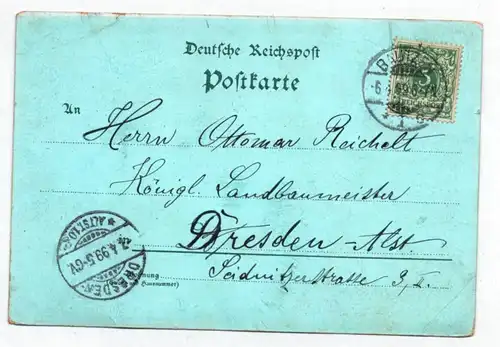 Deutsche Reichspost
Postkarte
An
Herrn Ottomar Reichelt
Königl. Landbaumeister
Dresden-Alst.
Seidnitzerstrasse 3, I.
Wohnung
DRESDEN
ALTST.
5